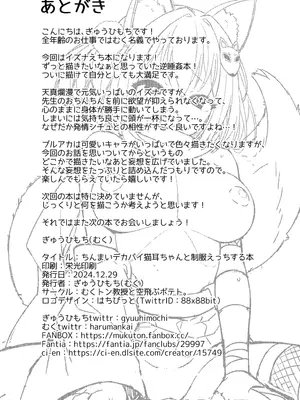 あとがき
こんにちは、ぎゅうひもちです!
全年齢のお仕事ではむく名義でやっております。
今回はイズナえち本になります!
ずっと描きたいなぁと思っていた逆睡姦本!
ついに描けて自分としても大満足です。
天真爛漫で元気いっぱいのイズナですが、
先生のおちんちんを前に欲望が抑えられなくなって、
心のままに身体が勝手に動いてしまう。
しまいには気持ち良さに頭が一杯になって…。
なぜだか発情シチュとの相性がすごく良いですよね…!
ブルアカは可愛いキャラがいっぱいで色々描きたくなりますが、
今回のお話を思いついてからというもの
どこかで描きたいなあと妄想を広げていました。
そんな妄想をたっぷりと詰め込んだつもりですので、
楽しんでもらえていたら嬉しいです!
次回の本は特に決めていませんが、
じっくりと何を描こうか考えようと思います!
それではまた次の本でお会いしましょう!
ぎゅうひもち(むく)
タイトル：ちんまいデカパイ猫耳ちゃんと制服えっちする本
印刷：栄光印刷
発行日：2024.12.29
発行者：ぎゅうひもち(むく)
サークル：むくトン教授と空飛ぶポテト。
ロゴデザイン：はちびっと(TwittrID：88x88bit)
ぎゅうひもちtwittr：gyuuhimochi
むくtwittr：harumankai
FANBOX：https://mukuton.fanbox.cc/
Fantia：https://fantia.jp/fanclubs/29997
ci-en：https://ci-en.dlsite.com/creator/15749